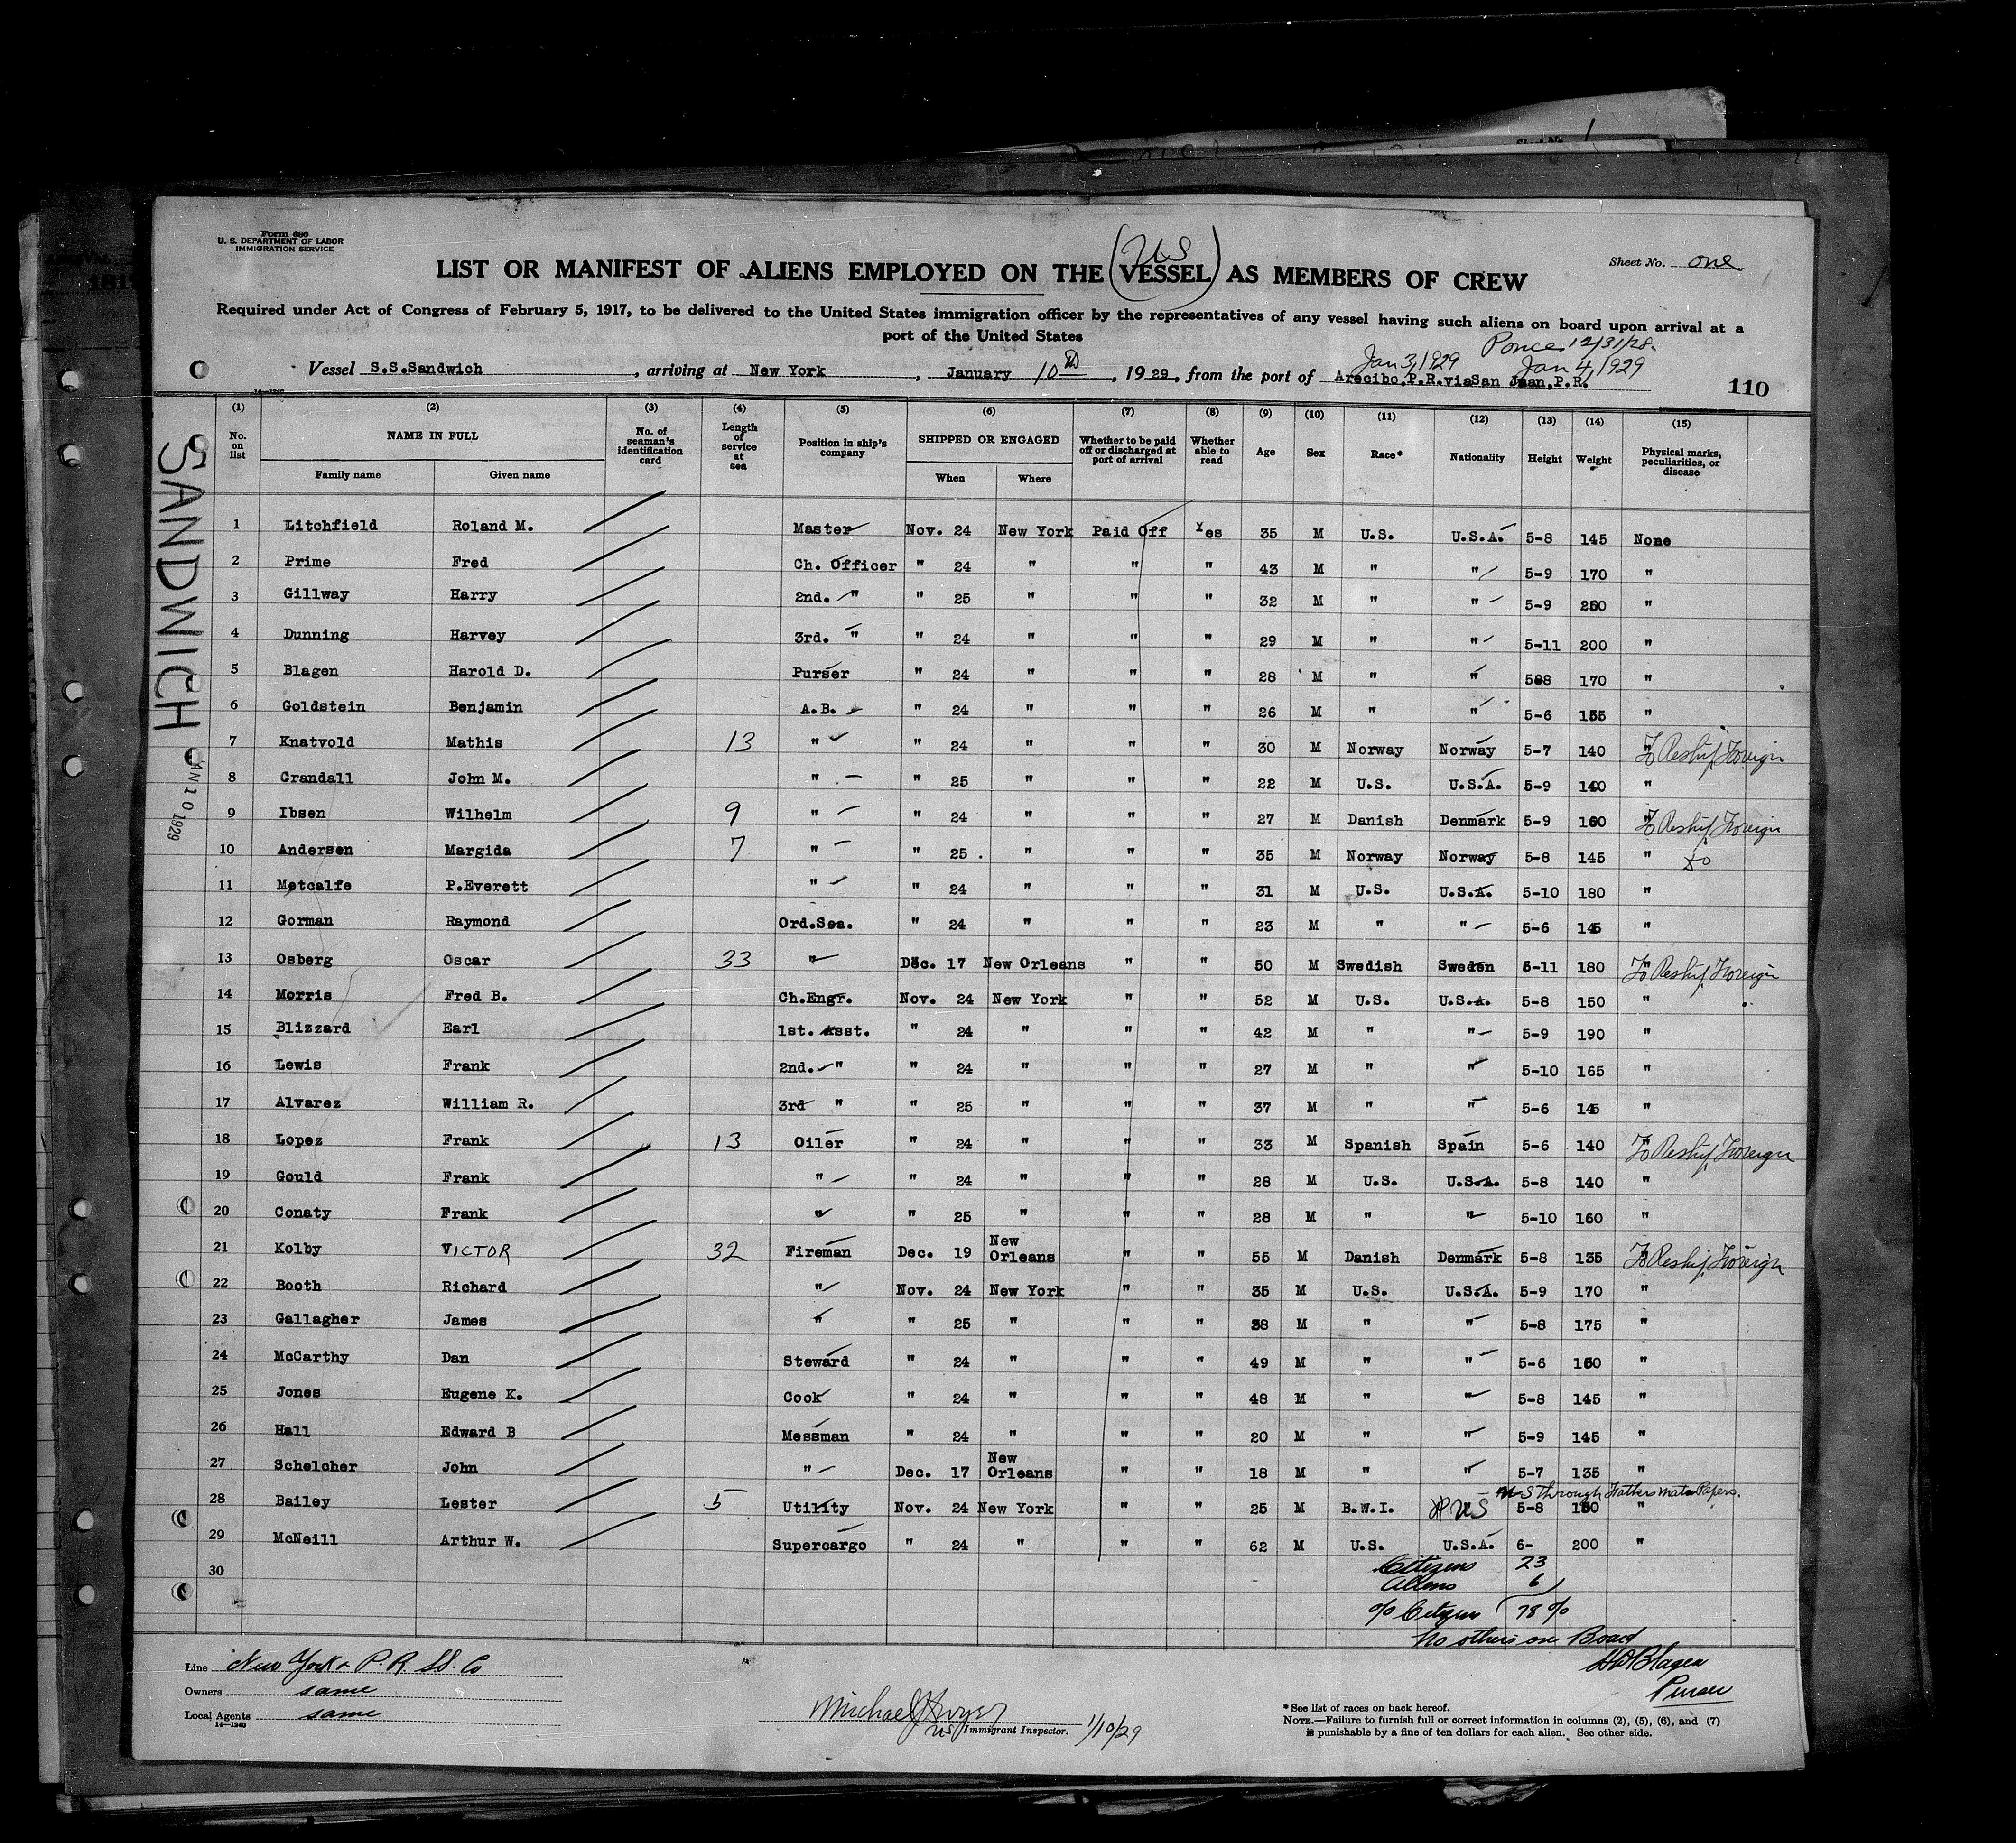 Form 680
U. S. DEPARTMENT OF LABOR
IMMIGRATION SERVICE
Sheet No. one
(US)
LIST OR MANIFEST OF ALIENS EMPLOYED ON THE VESSEL AS MEMBERS OF CREW
Required under Act of Congress of February 5, 1917, to be delivered to the United States immigration officer by the representatives of any vessel having such aliens on board upon arrival at a
port of the United States
Ponce 12/31/28
Jan 3, 1929 Jan 4, 1929
Vessel S.S.Sandwich, arriving at New York, January 10th, 1929, from the port of Arecibo,P.R.via San Juan,P.R.
14—1240
110
SANDWICH
JAN 10 1929
(1) (2) (3) (4) (5) (6) (7) (8) (9) (10) (11) (12) (13) (14) (15)
No. on list NAME IN FULL No. of seaman's identification card Length of service at sea Position in ship's company SHIPPED OR ENGAGED Whether to be paid off or discharged at port of arrival Whether able to read Age Sex Race* Nationality Height Weight Physical marks, peculiarities, or disease
Family name Given name When Where
1 Litchfield Roland M. Master Nov. 24 New York Paid Off Yes 35 M U.S. U.S.A. 5-8 145 None
2 Prime Fred Ch. Officer " 24 " " " 43 M " " 5-9 170 "
3 Gillway Harry 2nd. " " 25 " " " 32 M " " 5-9 200 "
4 Dunning Harvey 3rd. " " 24 " " " 29 M " " 5-11 200 "
5 Blagen Harold D. Purser " 24 " " " 28 M " " 5-8 170 "
6 Goldstein Benjamin A.B. " 24 " " " 26 M " " 5-6 155 "
7 Knatvold Mathis 13 " " 24 " " " 30 M Norway Norway 5-7 140 " To Reship Foreign
8 Crandall John M. " " 25 " " " 22 M U.S. U.S.A. 5-9 140 "
9 Ibsen Wilhelm 9 " " 24 " " " 27 M Danish Denmark 5-9 160 " To Reship Foreign
10 Andersen Margida 7 " " 25 " " " 35 M Norway Norway 5-8 145 " do
11 Metcalfe P.Everett " " 24 " " " 31 M U.S. U.S.A. 5-10 180 "
12 Gorman Raymond Ord.Sea. " 24 " " " 23 M " " 5-6 145 "
13 Osberg Oscar 33 " Dec. 17 New Orleans " " 50 M Swedish Sweden 5-11 180 " To Reship Foreign
14 Morris Fred B. Ch.Engr. Nov. 24 New York " " 52 M U.S. U.S.A. 5-8 150 "
15 Blizzard Earl 1st. Asst. " 24 " " " 42 M " " 5-9 190 "
16 Lewis Frank 2nd. " " 24 " " " 27 M " " 5-10 165 "
17 Alvarez William R. 3rd " " 25 " " " 37 M " " 5-6 145 "
18 Lopez Frank 13 Oiler " 24 " " " 33 M Spanish Spain 5-6 140 " To Reship Foreign
19 Gould Frank " " 24 " " " 28 M U.S. U.S.A. 5-8 140 "
20 Conaty Frank " " 25 " " " 28 M " " 5-10 160 "
21 Kolby VICTOR 32 Fireman Dec. 19 New Orleans " " 55 M Danish Denmark 5-8 135 " To Reship Foreign
22 Booth Richard " Nov. 24 New York " " 35 M U.S. U.S.A. 5-9 170 "
23 Gallagher James " " 25 " " " 38 M " " 5-8 175 "
24 McCarthy Dan Steward " 24 " " " 49 M " " 5-6 "
25 Jones Eugene K. Cook " 24 " " " 48 M " " 5-8 145 "
26 Hall Edward B Messman " 24 " " " 20 M " " 5-9 145 "
27 Schelcher John " Dec. 17 New Orleans " " 18 M " " 5-7 135 "
US through Fathers Papers.
28 Bailey Lester 5 Utility Nov. 24 New York " " 25 M B.W.I. US 5-8 "
29 McNeill Arthur W. Supercargo " 24 " " " 62 M U.S. U.S.A. 6- 200 "
30
Citizens 23
Aliens 6
% Citizens 78 %
No others on Board
HDBlagen
Purser
Line New York & P. R. SS. Co
Owners same
Local Agents same
14—1240
Michael
US Immigrant Inspector. 1/10/29
*See list of races on back hereof.
NOTE.—Failure to furnish full or correct information in columns (2), (5), (6), and (7)
is punishable by a fine of ten dollars for each alien. See other side.